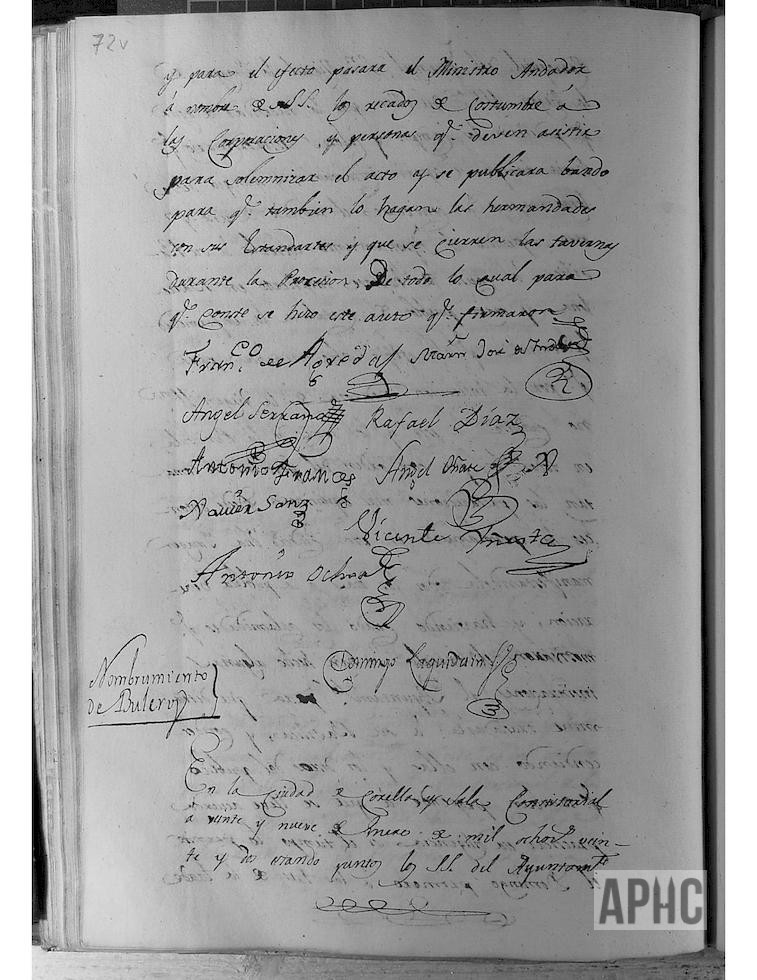 72v
y para el efecto pasara el Ministro Andador
á nombre de SS. los recados de Costumbre á
las Corporaciones y personas qe. deven asistir
para solemnizar el acto y se publicara bando
para qe. tambien lo hagan las hermandades
con sus Estandartes y que se cierren las tavernas
durante la Procesion De todo lo cual para
qe. Conste se hizo este auto qe. firmaron
Franco. de Agreda Martn. José
Angel Serrano Rafael Díaz
Antonio Frances Angel Oñate
Xavier Sanz
Vicente
Antonio Ochoa
Domingo Laquidain
Nombrumiento
de Bulero
En la Ciudad de Corella y Sala Consistorial
a veinte y nueve de Enero de mil ochocs. vein-
te y dos estando juntos los SS. del Ayuntamto.
APHC